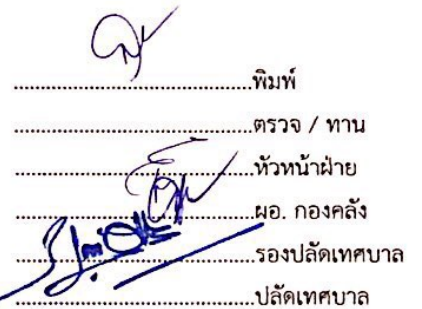 ..........................................พิมพ์
..........................................ตรวจ / ทาน
..........................................หัวหน้าฝ่าย
..........................................ผอ. กองคลัง
..........................................รองปลัดเทศบาล
..........................................ปลัดเทศบาล